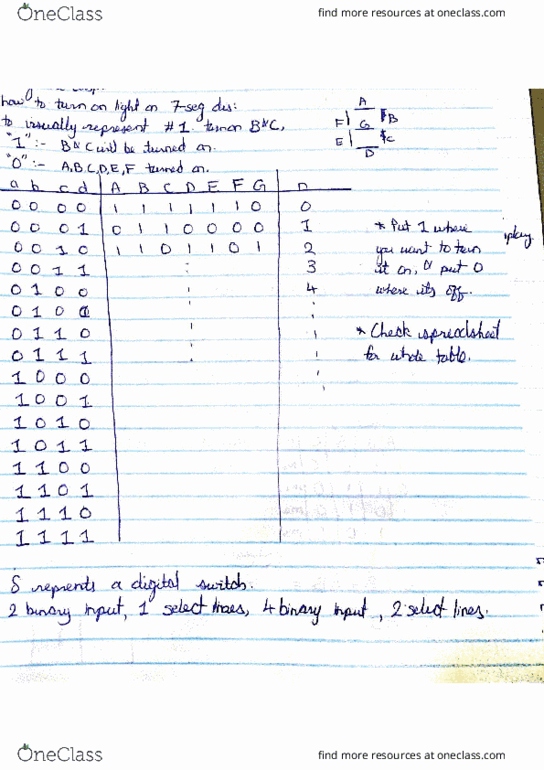 OneClass
find more resources at oneclass.com
how to turn on light on 7-seg dis:
to visually represent #1 turn on B&C,
"1" :- B & C will be turned on.
"0" :- A,B,C,D,E,F turned on.
A
F B
G
E C
D
a b c d A B C D E F G n
0 0 0 0 1 1 1 1 1 1 0 0
0 0 0 1 0 1 1 0 0 0 0 1
0 0 1 0 1 1 0 1 1 0 1 2
0 0 1 1 3
0 1 0 0 4
0 1 0
0 1 1 0
0 1 1 1
1 0 0 0
1 0 0 1
1 0 1 0
1 0 1 1
1 1 0 0
1 1 0 1
1 1 1 0
1 1 1 1
* Put 1 where
you want to turn
it on, & put 0
where its off.
* Check spreadsheet
for whole table.
S reprents a digital switch.
2 binary input, 1 select lines, 4 binary input, 2 select lines.
OneClass
find more resources at oneclass.com